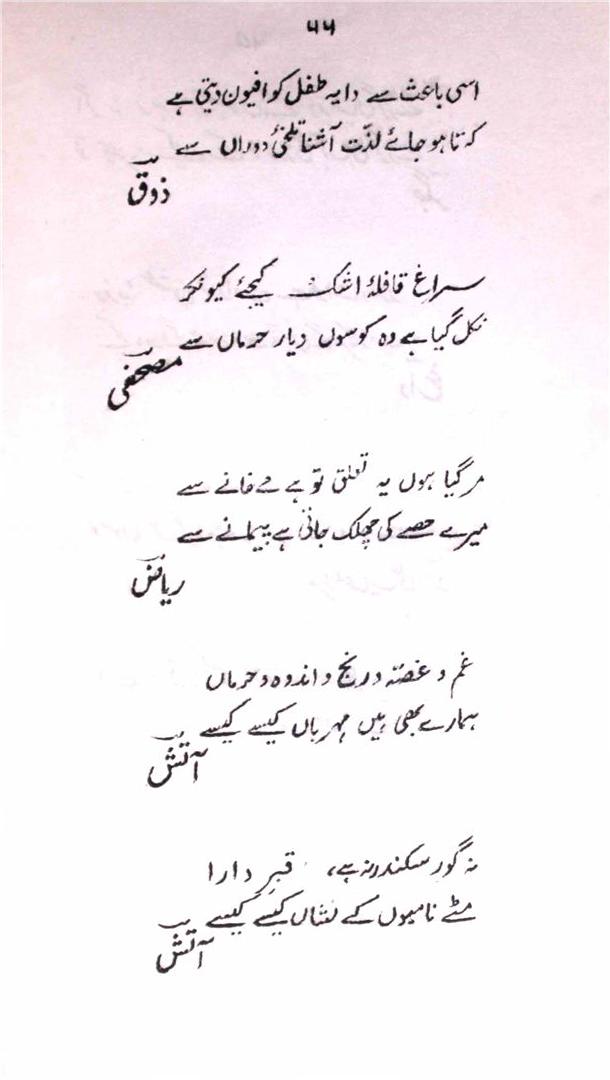 ۶۶
اسی باعث سے دایہ طفل کو افیون دیتی ہے
کہ تا ہو جائے لذّت آشنا تلخئ دوراں سے
ذوق
سراغ قافلۂ اشک کیجئے کیونکر
نکل گیا ہے وہ کوسوں دیار حرماں سے
مصحفی
مر گیا ہوں یہ تعلق تو ہے مے خانے سے
میرے حصے کی چھلک جاتی ہے پیمانے سے
ریاض
غم و غصّہ و رنج و اندوہ و حرماں
ہمارے بھی ہیں مہرباں کیسے کیسے
آتش
نہ گورِ سکندر نہ ہے، قبرِ دارا
مٹے نامیوں کے نشاں کیسے کیسے
آتش